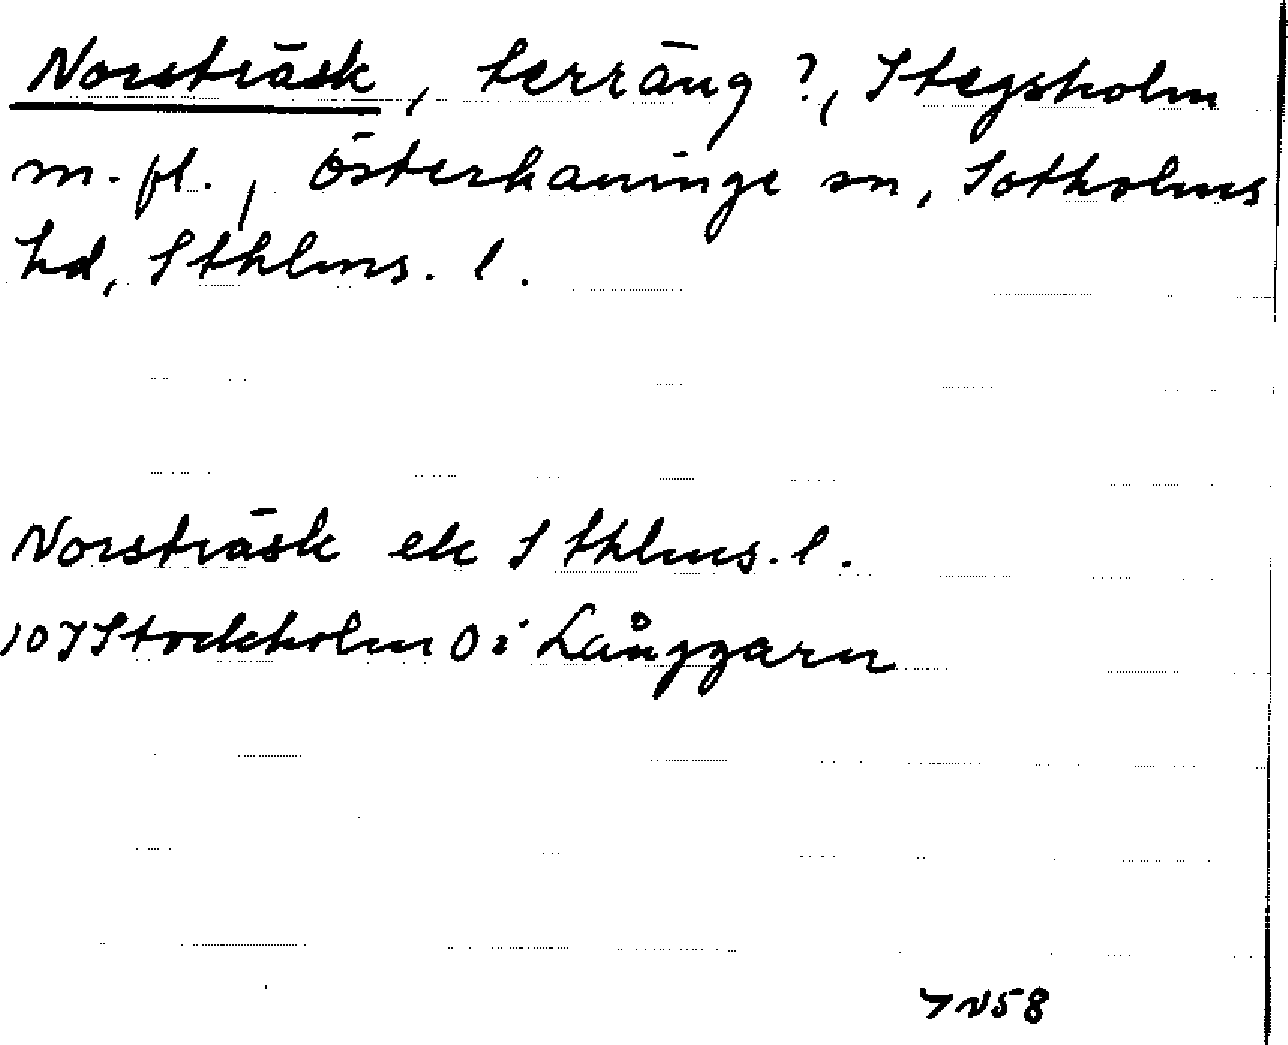 Norsträsk, terräng?, Stegsholm
m. fl., Österhaninge sn, Sotholms
hd, Sthlms. l.
Norsträsk ek Sthlms. l.
10J Stockholm Oi Långgarn